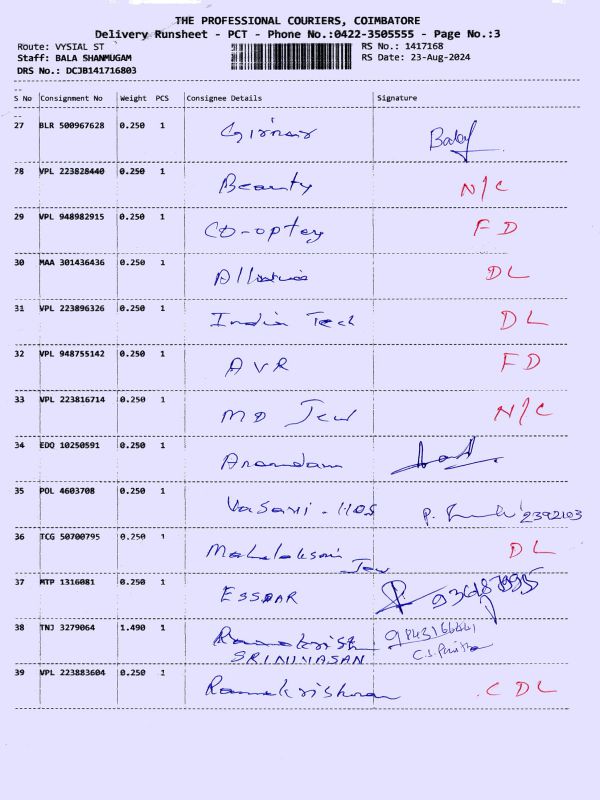 THE PROFESSIONAL COURIERS, COIMBATORE
Delivery Runsheet - PCT - Phone No.:0422-3505555 - Page No.:3
Route: VYSIAL ST RS No.: 1417168
Staff: BALA SHANMUGAM RS Date: 23-Aug-2024
DRS No.: DCJB141716803
S No Consignment No Weight PCS Consignee Details Signature
27 BLR 500967628 0.250 1
28 VPL 223828440 0.250 1 Beauty N/C
29 VPL 948982915 0.250 1 CO-optex FD
30 MAA 301436436 0.250 1 DL
31 VPL 223896326 0.250 1 India Tech DL
32 VPL 948755142 0.250 1 AVR FD
33 VPL 223816714 0.250 1 MD Jew N/C
34 EDQ 10250591 0.250 1
35 POL 4603708 0.250 1 Vasavi - HOS 2392103
36 TCG 50700795 0.250 1 DL
Jew
37 MTP 1316081 0.250 1 ESSDAR
38 TNJ 3279064 1.490 1
SRINIVASAN
39 VPL 223883604 0.250 1 Ramakrishnan CDL